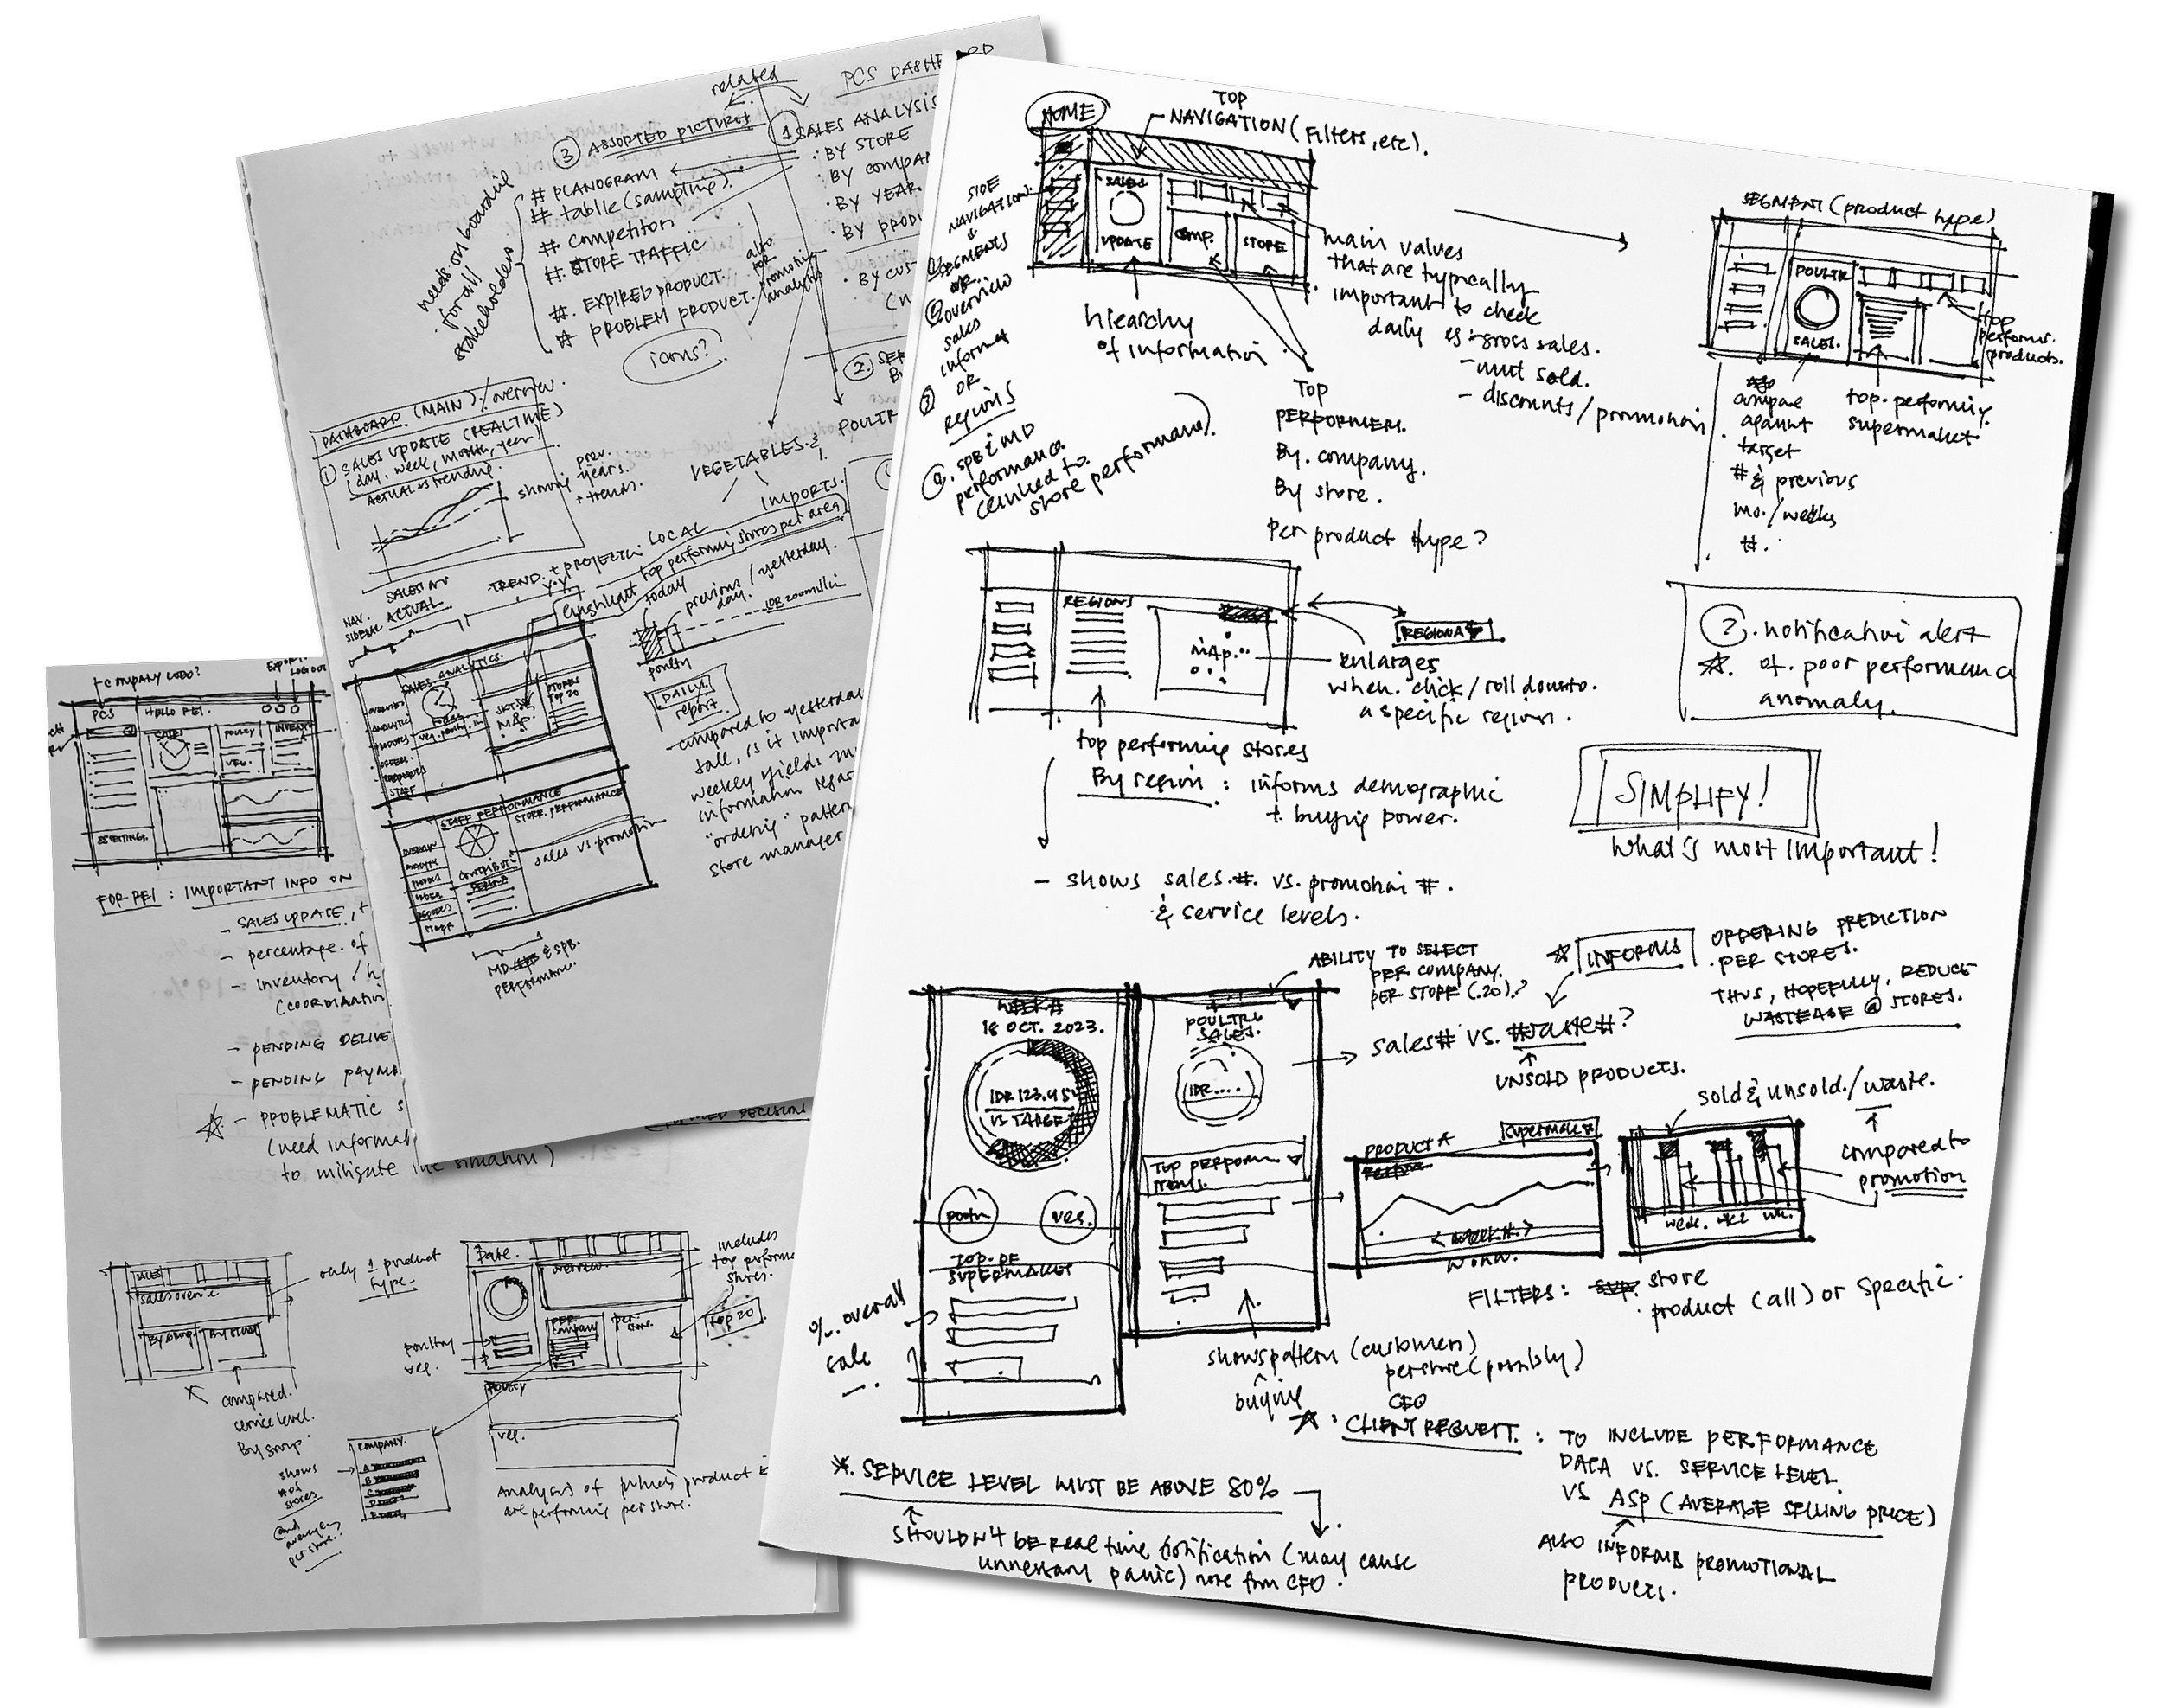 related
PCS DASH
③ ABSORTED PICTURES
# PLANOGRAM
# table (sampling).
# Competitors
# STORE TRAFFIC
# EXPIRED PRODUCT.
# PROBLEM PRODUCT.
also for promotion analysis
needs on board
for all
stakeholders
icons?
① SALES ANALYSIS
· BY STORE
· BY COMPA
· BY YEAR
· BY PRODU
· BY CUS
2. SER
B
DASHBOARD (MAIN) / overview.
① SALES UPDATE (REALTIME)
(day, week, month, year)
ACTUAL vs trending.
showing prev.
years.
+ trends.
VEGETABLES. &
POULTR
IMPORTS.
LOCAL
TREND. + PROJECTN.
Y.Y.
SALES IN
ACTUAL
NAV.
SIDEBAR
highlight top performing stores per area
today
previous / yesterday.
day.
poultry
DAILY.
report.
compared to yesterday
sale, is it importa
weekly yields m
information regar
"ordering" pattern
store manager
SALES ANALYTICS.
today
MAP.
STORES
TOP 20
STAFF
STAFF PERFORMANCE
STORE PERFORMANCE
sales vs promotion
MD & SPB.
PERFORMANCE.
+ COMPANY LOGO?
EXPORT.
LOG OUT
PCS
HELLO PEI.
SALES
POULTRY
VEG.
SETTINGS.
FOR PEI : IMPORTANT INFO ON
- SALES UPDATE, +
- percentage of
- inventory / h
(coordination
- PENDING DELIVE
- PENDING PAYME
☆ - PROBLEMATIC S
(need informat
to mitigate the situation)
DECISION
SALES
Sales overvie
By Group
only 1 product
type.
compared.
service level.
By group.
Date.
overview.
includes
top performe
stores.
top 20
PER
company
per
store.
poultry
veg.
POULTRY
veg.
COMPANY.
A
B
C
shows
# of
stores
(and
average
per store.
are performing per store.
HOME
TOP
NAVIGATION (Filters, etc).
SIDE
NAVIGATION:
① SEGMENTS
OR.
② overview
sales
informat
OR
③ REGIONS
④. SPB & MD
performance.
(linked to
store performance).
SALES
UPDATE
COMP.
STORE
hierarchy
of information
main values
that are typically
important to check
daily eg :- gross sales.
- unit sold.
- discounts / promotion
TOP
PERFORMERS.
By. company.
By store.
Per product type?
SEGMENT (product type)
POULTR
SALES.
top
performs.
products.
compare
against
target
# & previous
mo. / weeks
#.
top. performing
supermarket
②. notification alert
☆. of. poor performance
anomaly.
REGIONS
MAP
REGION A
enlarges
when click / roll down to.
a specific region.
top performing stores
By region : informs demographic
+ buying power.
SIMPLIFY!
What's most important!
- shows sales # vs. promotion #.
& service levels.
ABILITY TO SELECT
PER COMPANY.
PER STORE (.20).?
☆ INFORMS
ORDERING PREDICTION
PER STORES.
THUS, HOPEFULLY, REDUCE
WASTEAGE @ STORES.
WEEK #
18 OCT. 2023.
IDR 123.45
VS TARGET
veg.
SUPERMARKET
%. overall
sale
POULTRY
SALES.
IDR....
TOP PERFORM
ITEMS.
sales# vs. #waste#?
UNSOLD PRODUCTS.
sold & unsold. / waste.
compared to
promotion
PRODUCT A
week.
FILTERS: store
· product (all) or specific.
shows pattern (customers)
per store (possibly)
buying
CFO
☆ : CLIENT REQUEST. : TO INCLUDE PERFORMANCE
DATA VS. SERVICE LEVEL.
VS ASP (AVERAGE SELLING PRICE)
ALSO INFORMS PROMOTIONAL
PRODUCTS.
*. SERVICE LEVEL MUST BE ABOVE 80%
SHOULDN'T BE real time notification (may cause
unnessary panic) note from CFO.